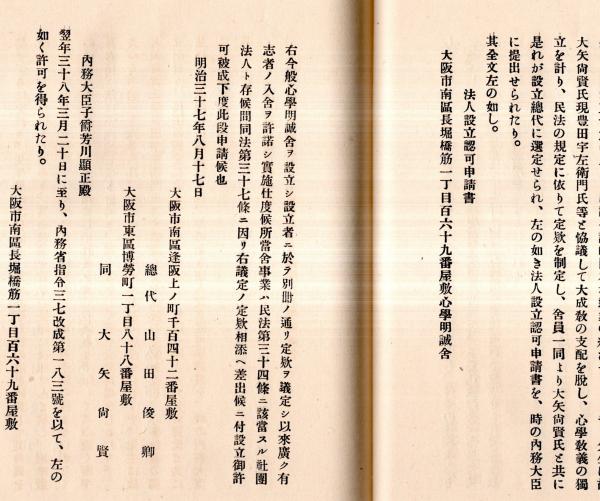 大矢尙賢氏現豊田宇左衞門氏等と協議して大成敎の支配を脫し、心學敎義の獨
立を計り、民法の規定に依りて定欵を制定し、舍員一同より大矢尙賢氏と共に
是れが設立總代に選定せられ、左の如き法人設立認可申請書を、時の內務大臣
に提出せられたり。
其全文左の如し。
法人設立認可申請書
大阪市南區長堀橋筋一丁目百六十九番屋敷心學明誠舍
右今般心學明誠舍ヲ設立シ設立者ニ於ヲ別冊ノ通リ定欵ヲ議定シ以來廣ク有
志者ノ入舍ヲ許諾シ實施仕度候所當舍事業ハ民法第三十四條ニ該當スル社團
法人ト存候間同法第三十七條ニ因リ右議定ノ定欵相添ヘ差出候ニ付設立御許
可被成下度此段申請候也
明治三十七年八月十七日
大阪市南區逢阪上ノ町千百四十二番屋敷
總代 山田俊卿
大阪市東區博勞町一丁目八十八番屋敷
同 大矢尙賢
內務大臣子爵芳川顯正殿
翌年三十八年三月二十日に至り、內務省指令三七改成第一八三號を以て、左の
如く許可を得られたり。
大阪市南區長堀橋筋一丁目百六十九番屋敷